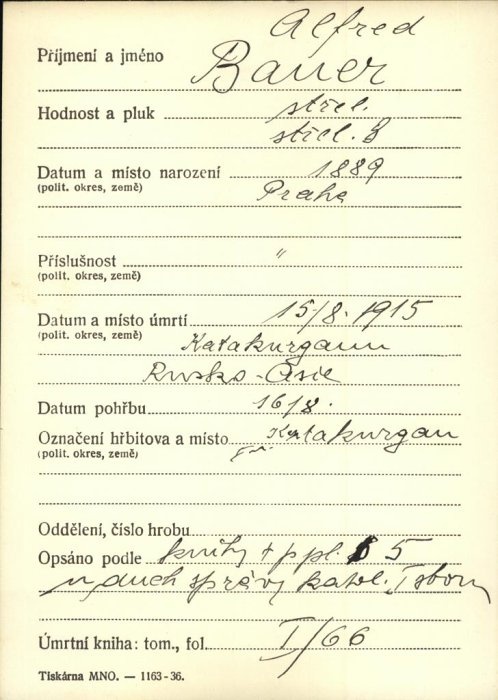 Alfred
Příjmení a jméno Bauer
Hodnost a pluk střel.
střel. 8
Datum a místo narození 1889
(polit. okres, země) Praha
Příslušnost "
(polit. okres, země)
Datum a místo úmrtí 15/8. 1915
(polit. okres, země) Katakurgann
Rusko-Asie
Datum pohřbu 16/8.
Označení hřbitova a místo Katakurgan
(polit. okres, země)
Oddělení, číslo hrobu
Opsáno podle knihy + p pl. 5
u duch správy katol.
Úmrtní kniha: tom., fol. I/66
Tiskárna MNO. — 1163-36.